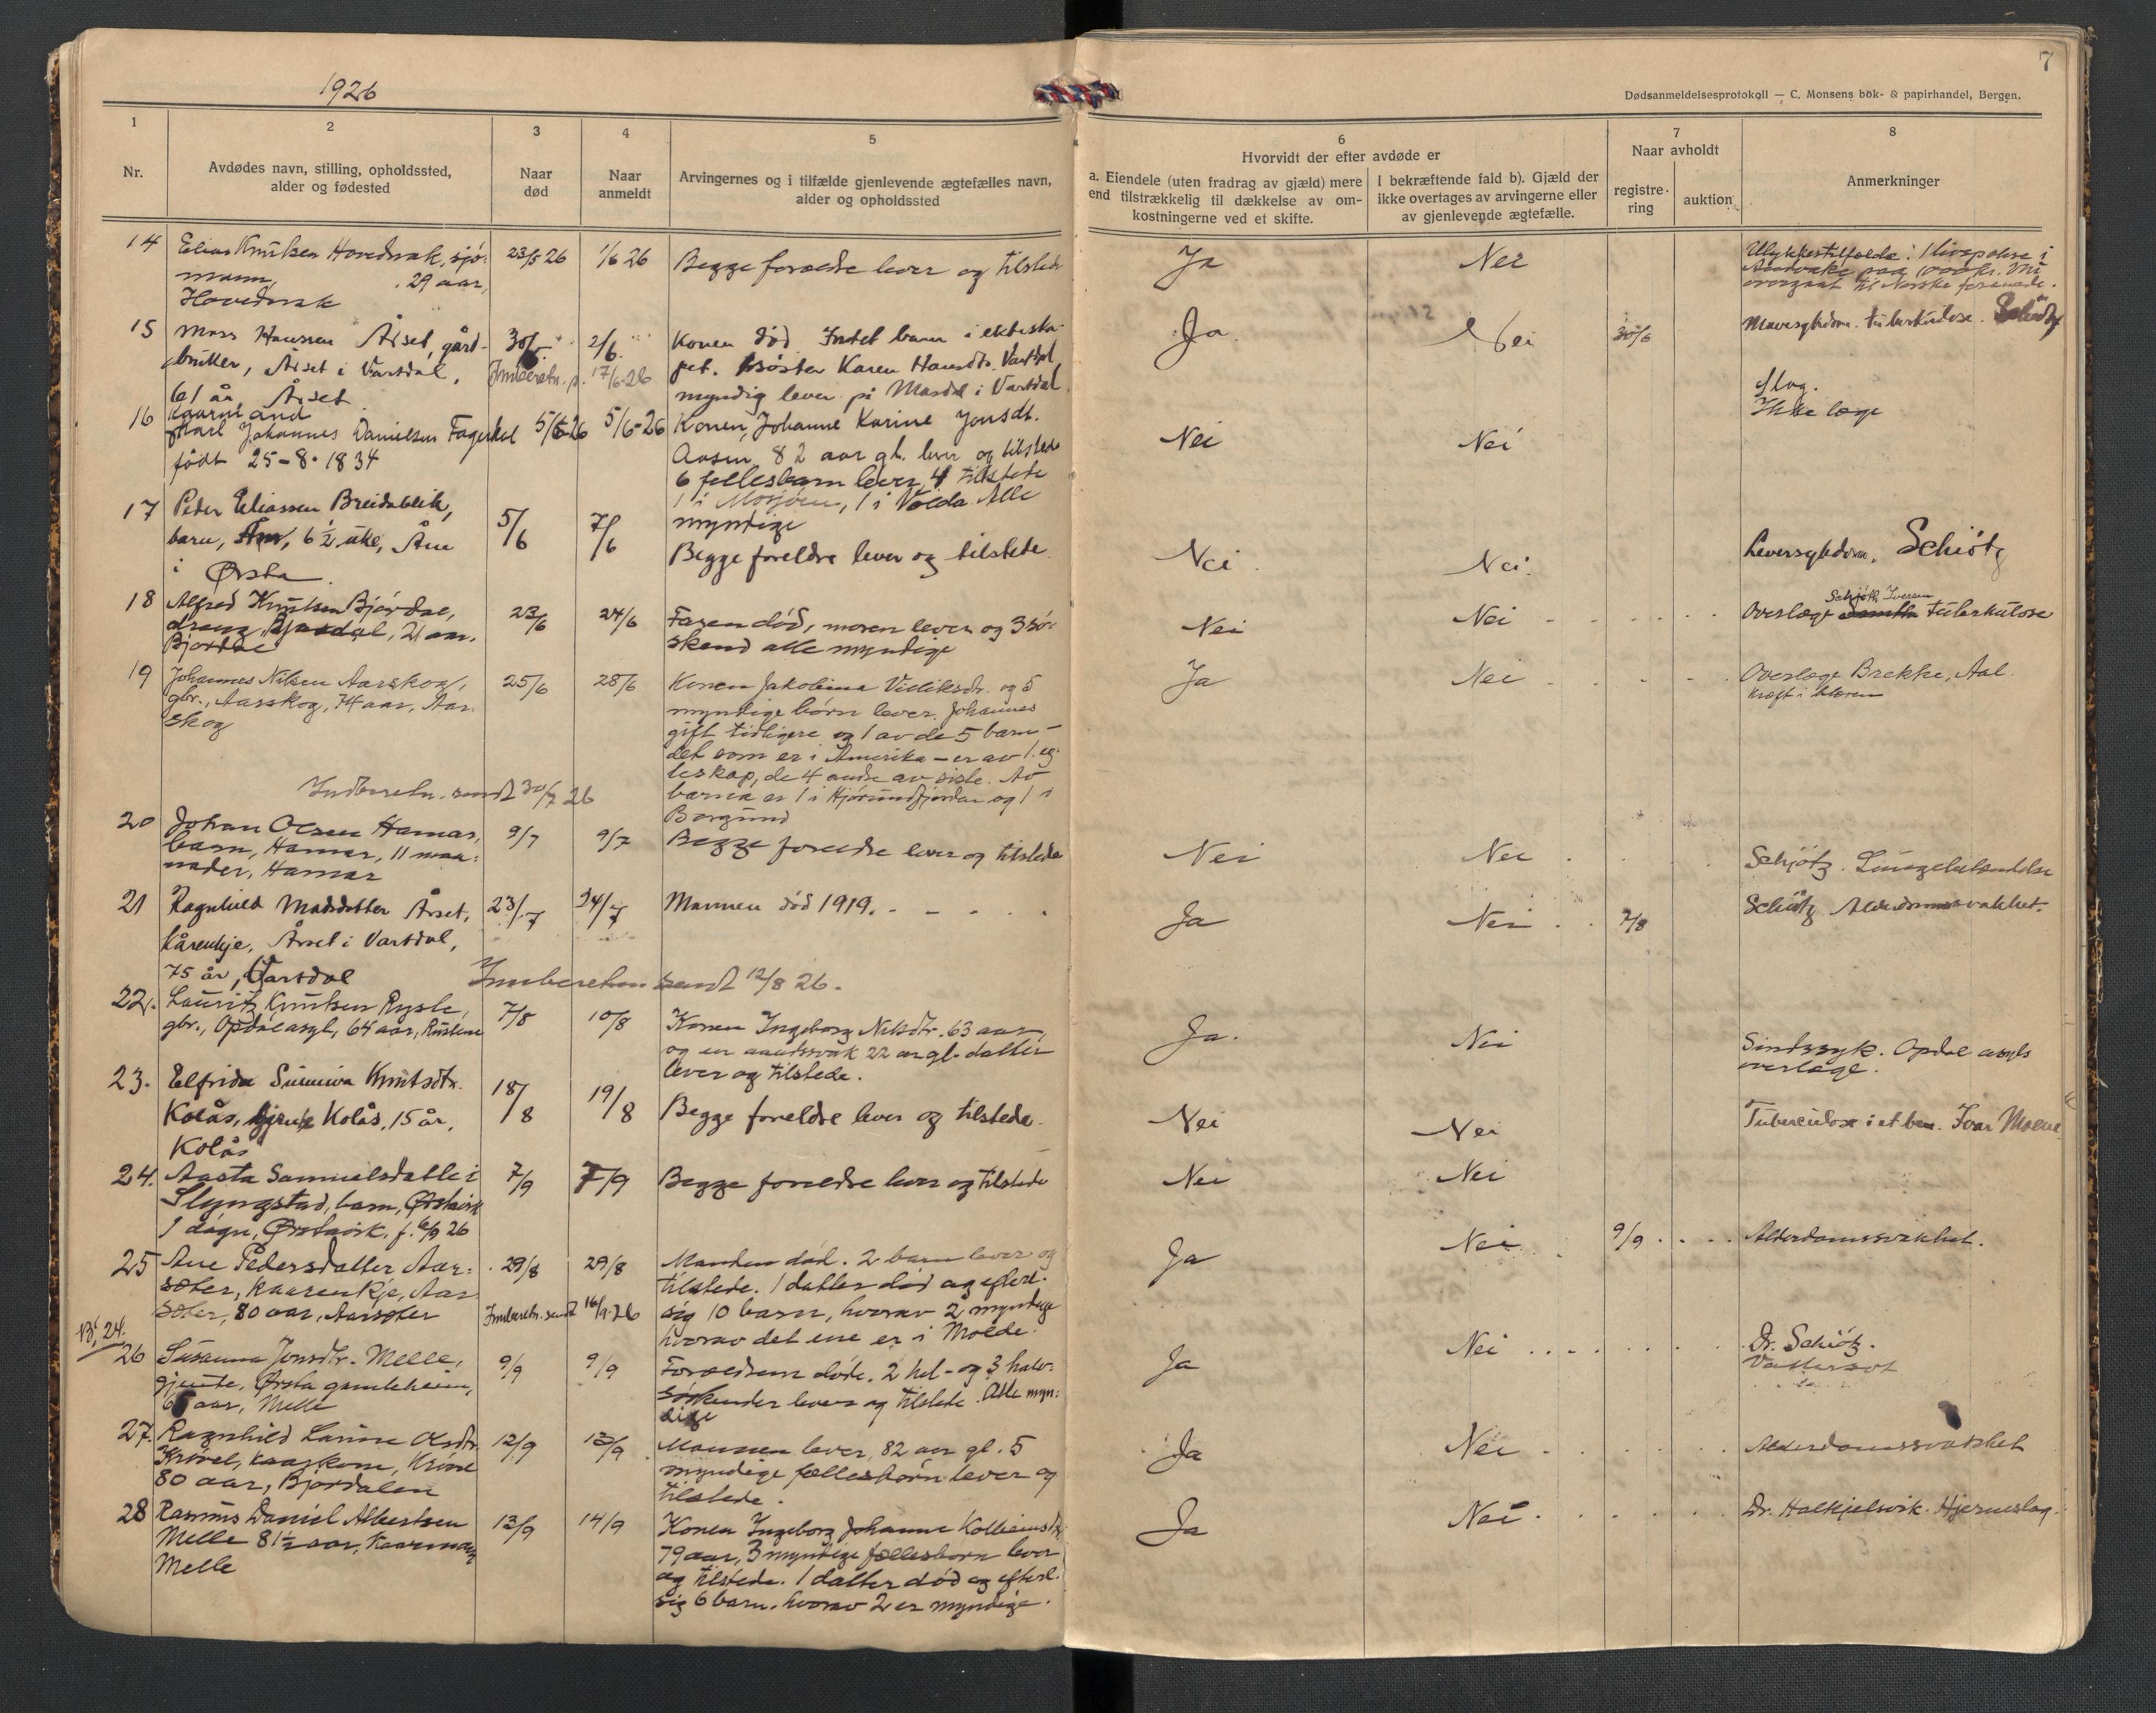 1926
7
Dødsanmeldelsesprotokoll — C. Monsens bok- & papirhandel, Bergen.
1
2
3
4
5
6
7
8
Nr.
Avdødes navn, stilling, opholdssted,
alder og fødested
Naar
død
Naar
anmeldt
Arvingernes og i tilfælde gjenlevende ægtefælles navn,
alder og opholdssted
Hvorvidt der efter avdøde er
a. Eiendele (uten fradrag av gjæld) mere
end tilstrækkelig til dækkelse av om-
kostningerne ved et skifte.
I bekræftende fald b). Gjæld der
ikke overtages av arvingerne eller
av gjenlevende ægtefælle.
Naar avholdt
registre-
ring
auktion
Anmerkninger
14 Elias Knutsen Hovednak, sjø-
mann, 29 aar,
Hovednak
23/5 26
1/6 26
Begge foreldre lever og tilstede
Ja
Nei
Ulykkestilfælde. 1 livspolise i
Andvake paa 1000 kr.
overgaat til Norske forenede.
15 Mass Hanssen Årset, gård-
bruker, Årset i Vartdal,
61 år, Årset
30/5
2/6
Innberetn. s. 17/6-26
Konen død. Intet barn i ekteska-
pet. Søster Karen Hansdtr. Vartdal
myndig lever på Masdal i Vartdal
Ja
Nei
30/6
Mavesykdom. tuberkulose. Schiøtz
16 Kaarmand
Karl Johannes Danielsen Fager
født 25-8-1834
5/6-26
5/6-26
Konen, Johanne Karine Jonsdt.
Aasen 82 aar gl. lever og tilstede
6 fellesbarn lever, 4 tilstede
1 i Mosjøen, 1 i Volda Alle
myndige
Nei
Nei
slag.
Ikke læge
17 Peder Eliassen Breidablik,
barn, 6½ uke, Åne
i Ørsta
5/6
7/6
Begge foreldre lever og tilstede.
Nei.
Nei.
Leversykdom. Schiötz
18 Alfred Knutsen Bjørdal,
dreng, Bjørdal, 21 aar,
Bjørdal
23/6
24/6
Faren død, moren lever og 3 sø-
skend alle myndige
Nei
Nei
Schjøth Iversen
Overlæge tuberkulose
19 Johannes Nilsen Aarskog,
gbr., Aarskog, 74 aar, Aar
skog
25/6
28/6
Konen Jakobina Vidiksdtr. og 5
myndige børn lever. Johannes
gift tidligere og 1 av de 5 barn –
det som er i Amerika – er av 1. eg-
teskap, de 4 andre av siste. Av
barna er 1 i Hjørundfjorden og 1 i
Borgund
Ja
Nei
Overlæge Brekke, Aal.
Kræft i blæren
Indberetn. sendt 30/7 26
20 Johan Olsen Hamar,
barn, Hamar, 11 maa-
nader, Hamar
9/7
9/7
Begge foreldre lever og tilstede
Nei
Nei
Schjötz. Lungebetændelse
21 Ragnhild Madsdatter Årset,
kårenkje, Årset i Vartdal,
75 år, Vartdal
23/7
24/7
Mannen død 1919.
Ja
Nei
7/8
Schiøtz Alderdomssvakhet.
Innberetn. sendt 12/8 26.
22. Lauritz Knutsen Rysle,
gbr., Opdal asyl, 64 aar,
7/8
10/8
Konen Ingeborg Nilsdtr. 63 aar
og en aandssvak 22 aar gl. datter
lever og tilstede.
Ja.
Nei
Sindssyk. Opdal asyls
overlæge.
23. Elfrida Sunniva Knutsdtr.
Kolås, gjente Kolås, 15 år,
Kolås
18/8
19/8
Begge foreldre lever og tilstede.
Nei
Nei
Tuberculose i et ben. Ivar Moene
24. Aasta Samuelsdatter
Slyngstad, barn, Ørstavik
1 døgn, Ørstavik, f. 6/9 26
7/9
7/9
Begge foreldre lever og tilstede
Nei
Nei
25 Ane Pedersdatter Aar-
seter, kaarenkje, Aar
seter, 80 aar, Aarseter
29/8
29/8
Innberetn. sendt 16/9-26
Manden død. 2 barn lever og
tilstede. 1 datter død og efterl.
sig 10 barn, hvorav 2 myndige
hvorav det ene er i Molde.
Ja
Nei
9/9
Alderdomssvakhet.
26 Susanna Jonsdtr. Melle,
gjente, Ørsta gamleheim,
aar, Melle
9/9
9/9
Foreldrene døde. 2 hel- og 3 halv-
søskender lever og tilstede. Alle myn-
dige
Ja
Nei
Dr. Schiötz.
Vattersot
27. Ragnhild Larine Olsdtr.
Krøvel, kaarkone, Krøvel
80 aar, Bjørdalen
12/9
13/9
Mannen lever, 82 aar gl. 5
myndige fællesbørn lever og
tilstede.
Ja
Nei
Alderdomssvakhet
28 Rasmus Daniel Albertsen
Melle 81½ aar, Kaarmann,
Melle
13/9
14/9
Konen Ingeborg Johanne Kolbeinsdtr.
79 aar, 3 myndige fællesbørn lever
og tilstede. 1 datter død og efterl.
sig 6 barn, hvorav 2 er myndige.
Ja
Nei
Dr. Halkjelsvik. Hjerneslag.